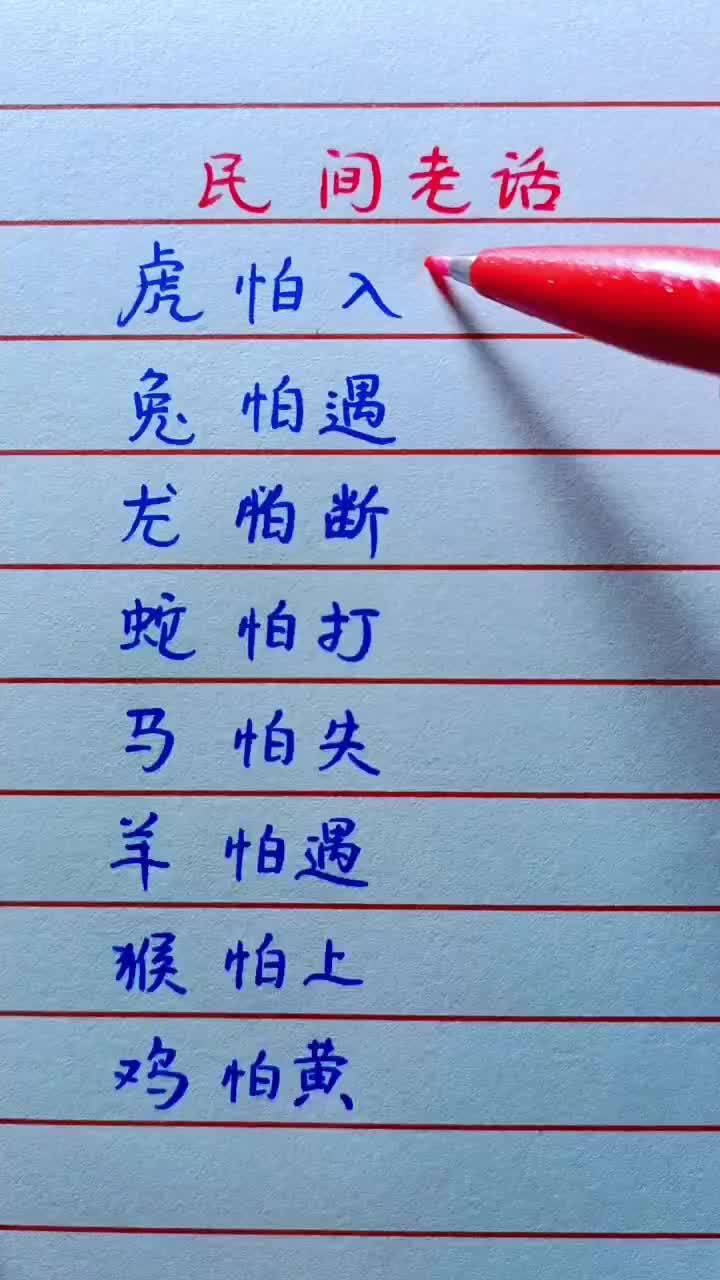 民间老话
虎怕入
兔怕遇
龙怕断
蛇怕打
马怕失
羊怕遇
猴怕上
鸡怕黄